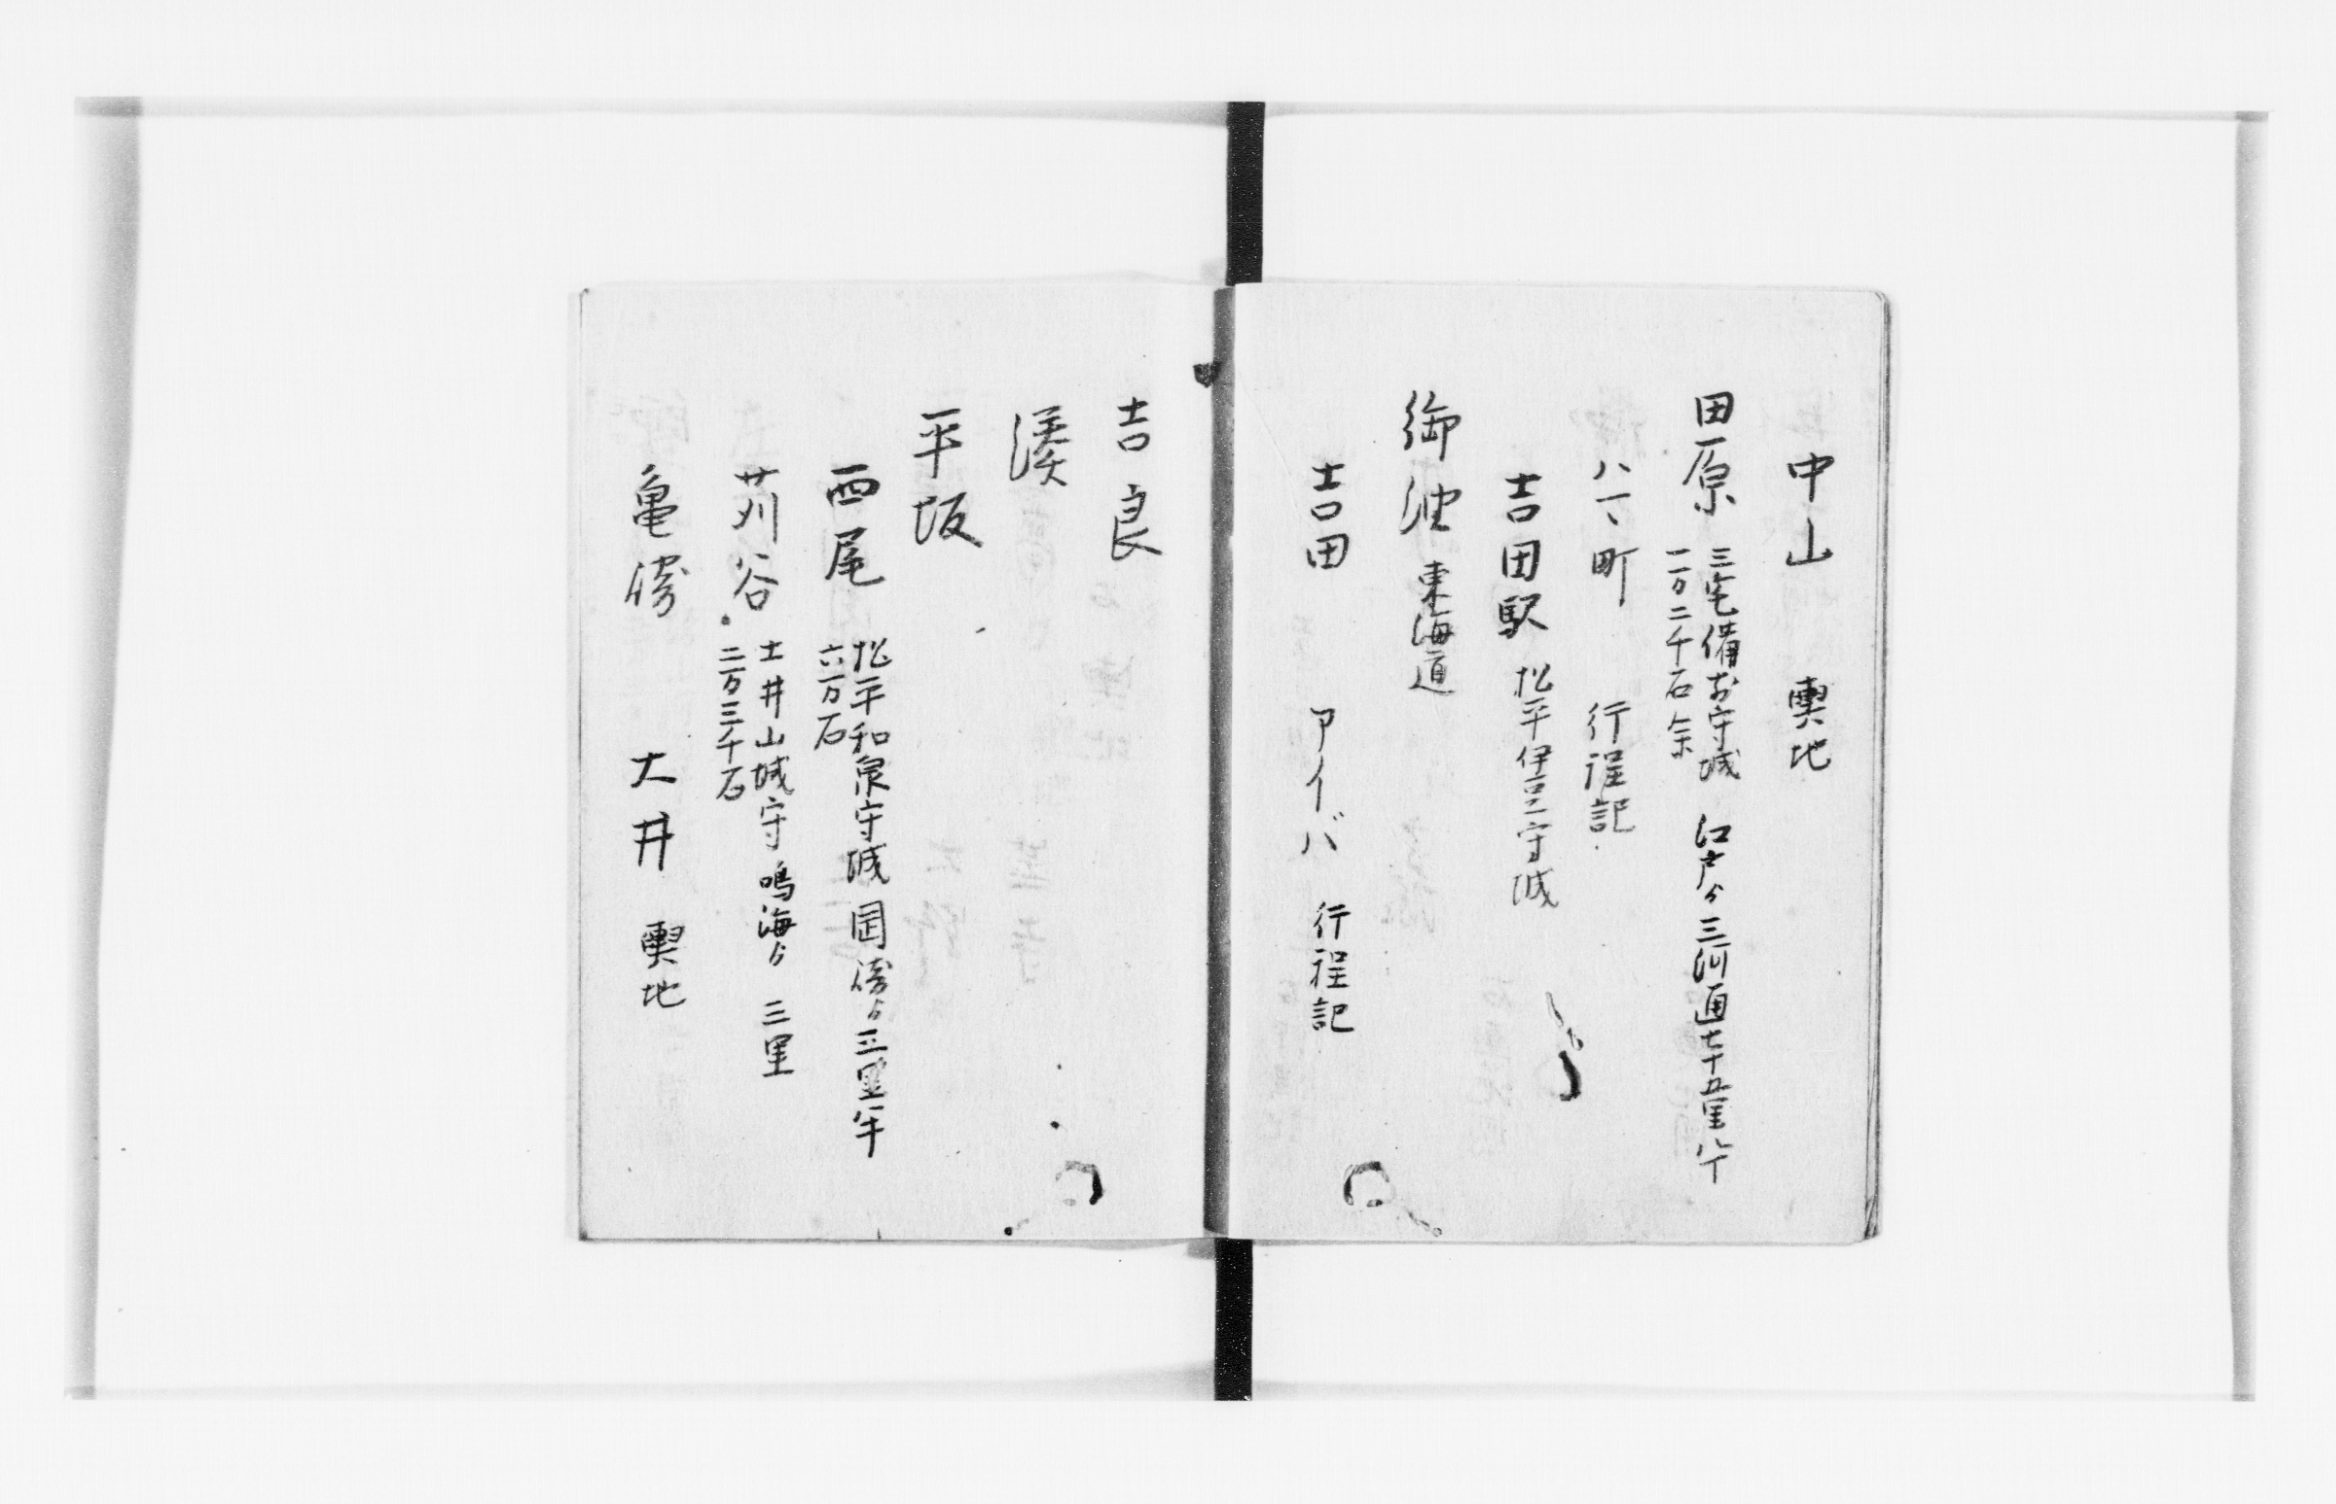 中山 輿地
田原 三宅備前守城 江戸ゟ三河通七十五里半
一万二千石余
八丁町 行程記
吉田駅 松平伊豆守城
御油 東海道
吉田 アイバ 行程記
吉良
湊
平坂
西尾 松平和泉守城 岡崎ゟ三里半
六万石
苅谷 土井山城守 鳴海ゟ 三里
二万三千石
亀崎 大井 輿地